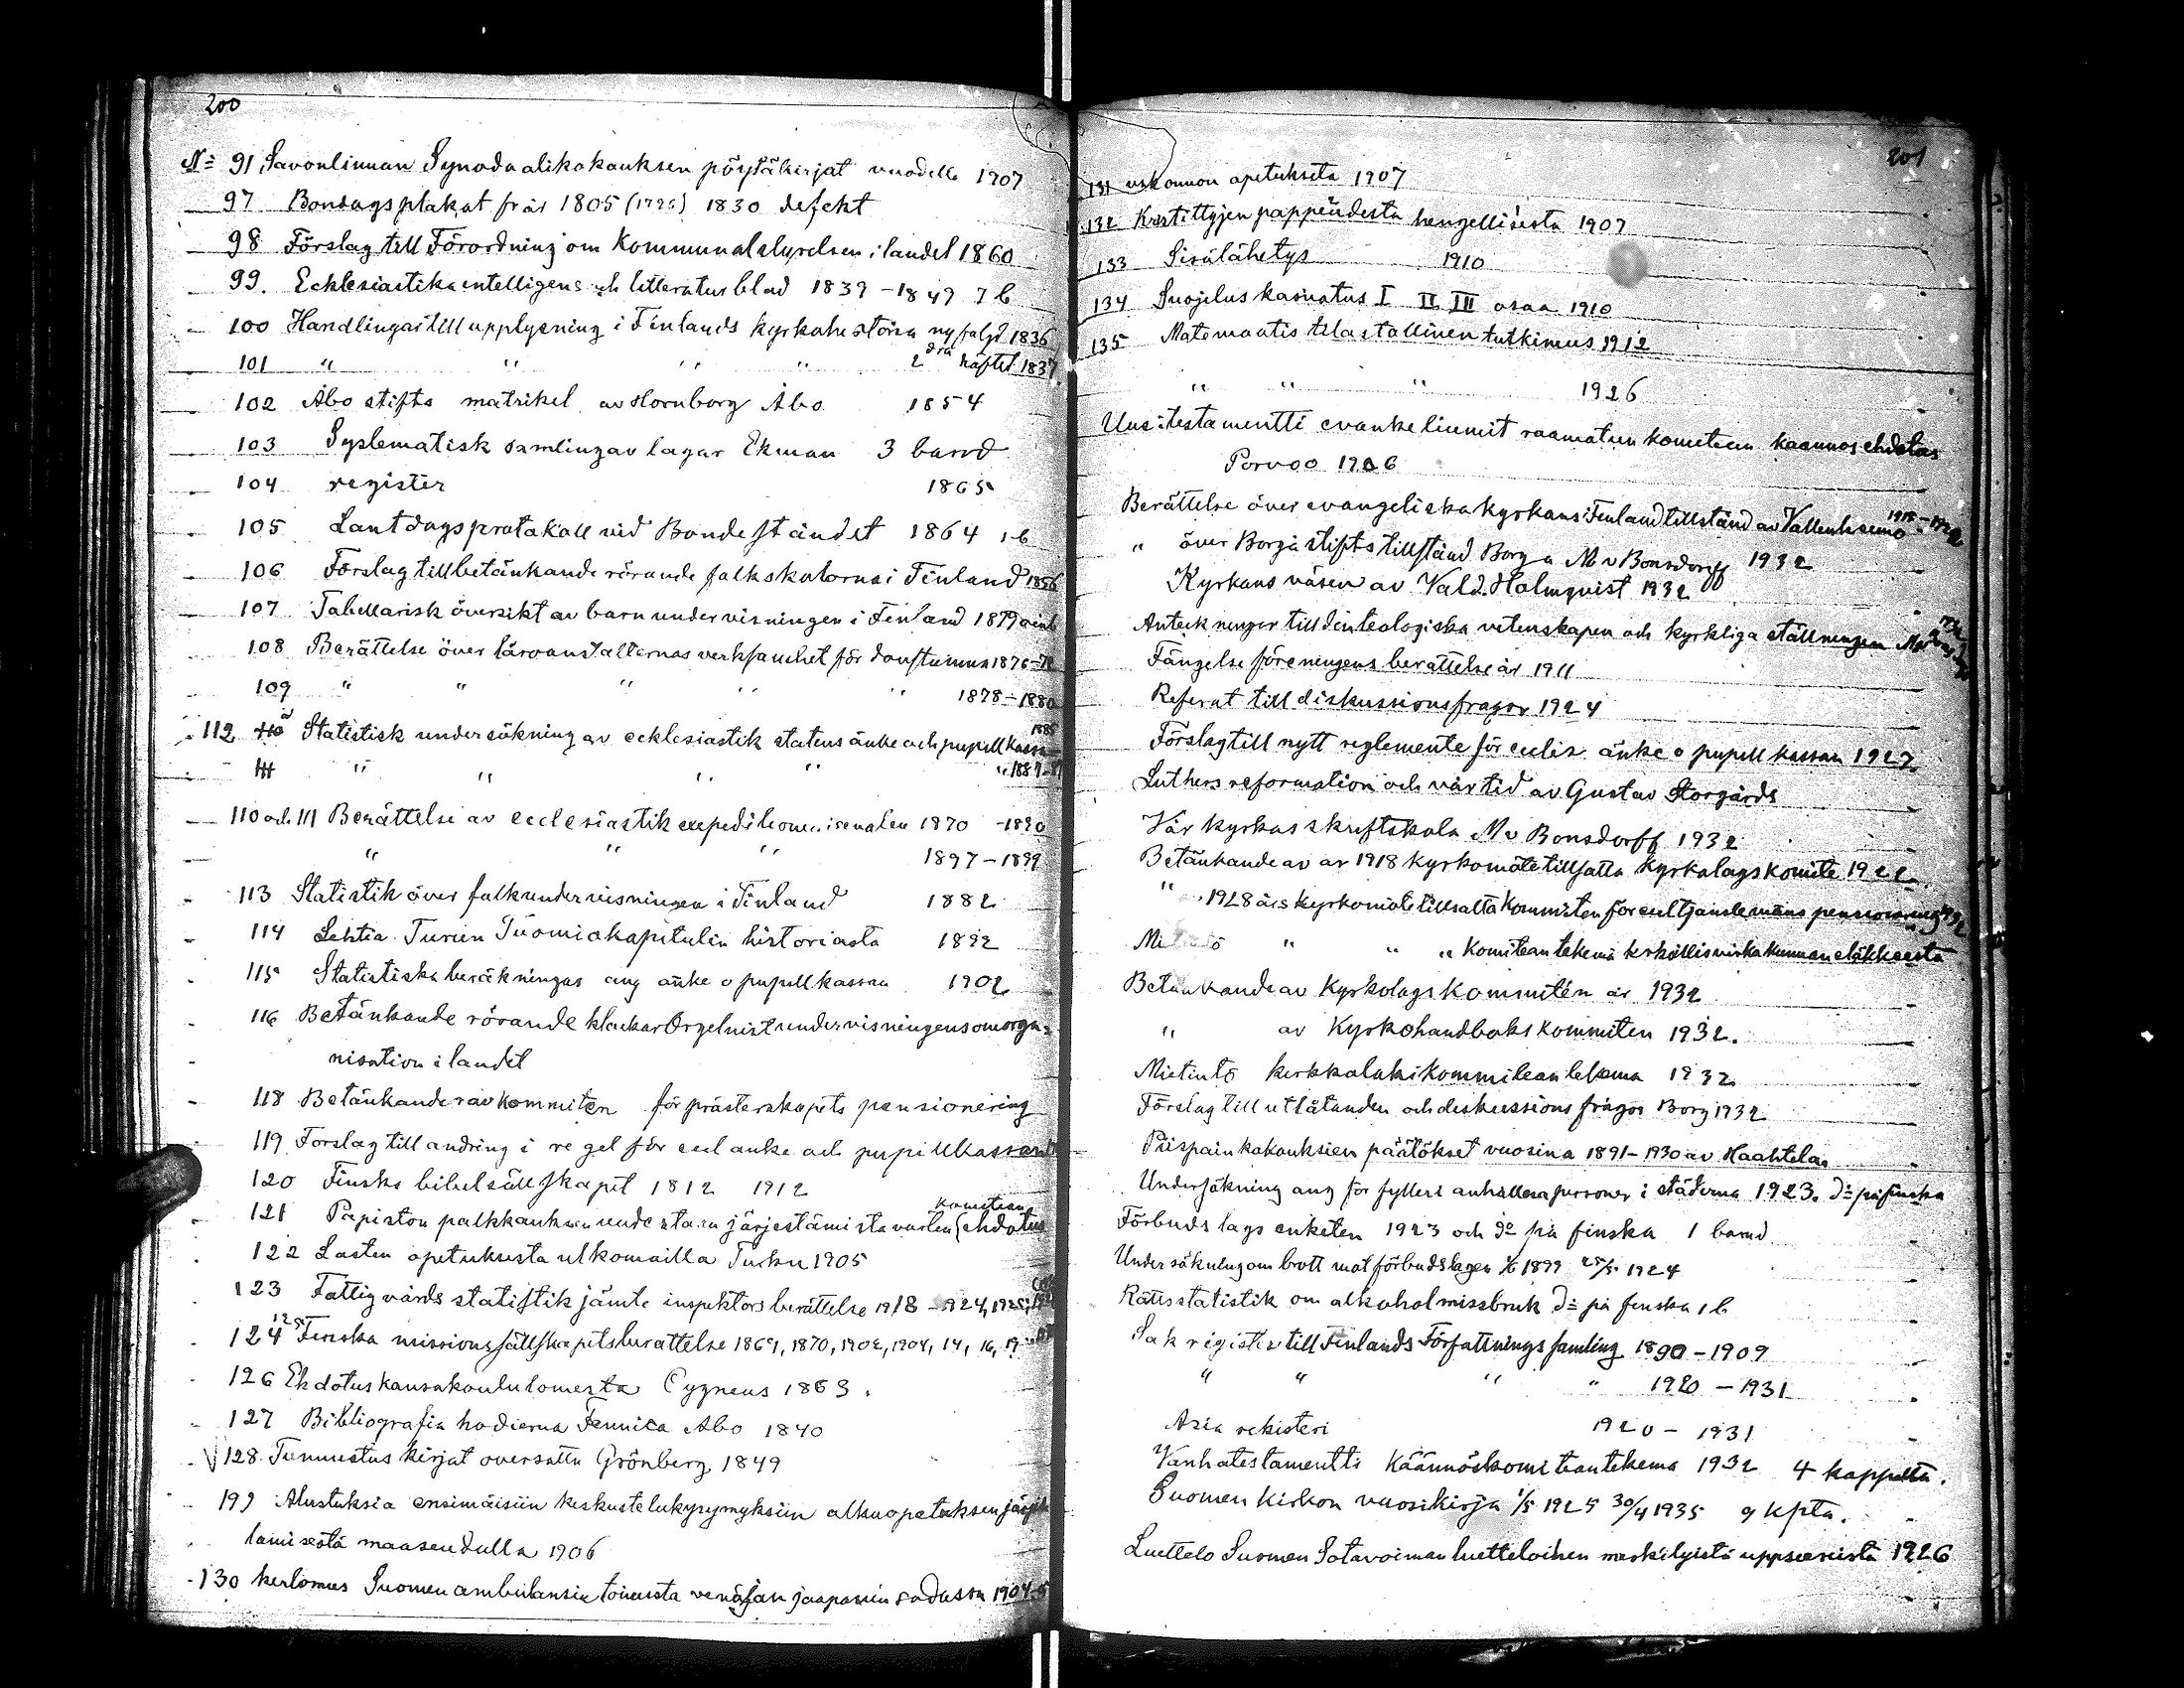 200
No 91 Savonlinnan Synodaalikokouksen pöytäkirjat vuodelta 1907
97 Bondagsplakat från 1805 (1796) 1830 defekt
98 Förslag till Förordning om Kommunalstyrelsen i landet 1860
99. Ecklesiastika intelligens och litteratur blad 1839 - 1849 7 b
100 Handlingar till upplysning i Finlands Kyrkohistoria ny följd 1836
101 " " " " 2 dra häftet 1837
102 Åbo stifts matrikel av Hornborg Åbo 1854
103 Systematisk samling av lagar Ekman 3 band
104 register 1865
105 Lantdagsprotakoll vid Bondeståndet 1864 1 b
106 Förslag till betänkande rörande folkskolorna i Finland 1856
107 Tabellarisk översikt av barnundervisningen i Finland 1879
108 Berättelse över läroanstalternas verksamhet för 1876-78
109 " " " " " 1878-1880
112 110 Statistisk undersökning av ecklesiastik statens änke och pupill kassa 1885
111 " " " " " 1887-
110 och 111 Berättelse av ecclesiastik expeditionen i senaten 1870 - 1890
" " " 1897-1899
113 Statistik över folkundervisningen i Finland 1882
114 Lehtia Turun Tuomiokapitulin historiasta 1892
115 Statistiska beräkningar ang änke o pupillkassan 1902
116 Betänkande rörande klockar Orgelnistundervisningens omorga-
nisation i landet
118 Betänkande av kommiten för prästerskapets pensionering
119 Förslag till andring i regel för eccl anke och pupillkassan
120 Finska bibelsällskapet 1812 1912
121 Papiston palkkauksen uudestaan järjestämistä varten komitean ehdotus
122 Lasten opetuksesta ulkomailla Turku 1905
123 Fattigvårds statistik jämte inspektors berättelse 1918 - 1924, 1925,
124 125 Finska missionssällskapets berättelse 1869, 1870, 1902, 1904, 14, 16, 19
126 Ehdotus kansakoulutoimesta Cygneus 1863.
127 Bibliografia hodierna Fennica Åbo 1840
V 128. Tunnustus kirjat översatta Grönberg 1849
199 Alustuksia ensimäisiin keskustelukysymyksiin alkuopetuksen järjes
tämisestä maaseudulla 1906
130 kertomus Suomen ambulansin toimista venäjän jaapanin sodassa 1904-5
201
131 uskonnon opetuksesta 1907
132 Kristittyjen pappeudesta hengellisestä 1907
133 Sisälähetys 1910
134 Suojelus kasvatus I II III osaa 1910
135 Matemaatis tilastollinen tutkimus 1912
" " " 1926
Uusi testamentti evankeliumit raamatun komitean käännos ehdotus
Porvoo 1906
Berättelse över evangeliska kyrkans i Finland tillstånd av Vallenheimo 1918-1922
" över Borgå stifts tillstånd Borga M v Bonsdorff 1932
Kyrkans väsen av Vald. Holmqvist 1932
Anteckningar till den teologiska vetenskapen och kyrkliga ställningen
Fångelse föreningens berättelse år 1911
Referat till diskussionsfragor 1924
Förslag till nytt reglemente för eccles. änke o pupill kassan 1927.
Luthers reformation och vår tid av Gustav Storgårds
Vår kyrkas skriftskola M v Bonsdorff 1932
Betänkande av av 1918 kyrkomöte tillsatta Kyrkolagskomite 1922
" 1928 års kyrkomöte tillsatta kommiten for eccl tjanstemäns pensionering 1932
" " " Komitean tekemä kirkollisvirkakunnan eläkkeestä
Betänkande av Kyrkolagskommitén år 1932
" av Kyrkohandboks kommiten 1932.
Mietintö kirkkolaki kommitean tekema 1932
Förslag till utlåtanden och diskussions frågor Borg 1932
Piispainkokouksien päätökset vuosina 1891-1930 av Haahtela
Undersökning ang för fylleri anhållna personer i städerna 1923. do på finska
Förbudslags enketen 1923 och do på finska 1 band
Undersökning om brott mot förbudslagen 1/6 1899 25/5 1924
Rättsstatistik om alkoholmissbruk do på finska 1 b
Sak register till Finlands Författnings samling 1890-1909
" " " " 1920 - 1931
Asia rekisteri 1920 - 1931
Vanhatestamentti Käännöskomitean tekema 1932 4 kappaletta.
Suomen kirkon vuosikirja 1/5 1925 30/4 1935 9 kpta.
Luettelo Suomen Sotavoiman luetteloihin merkityistä uppseereista 1926